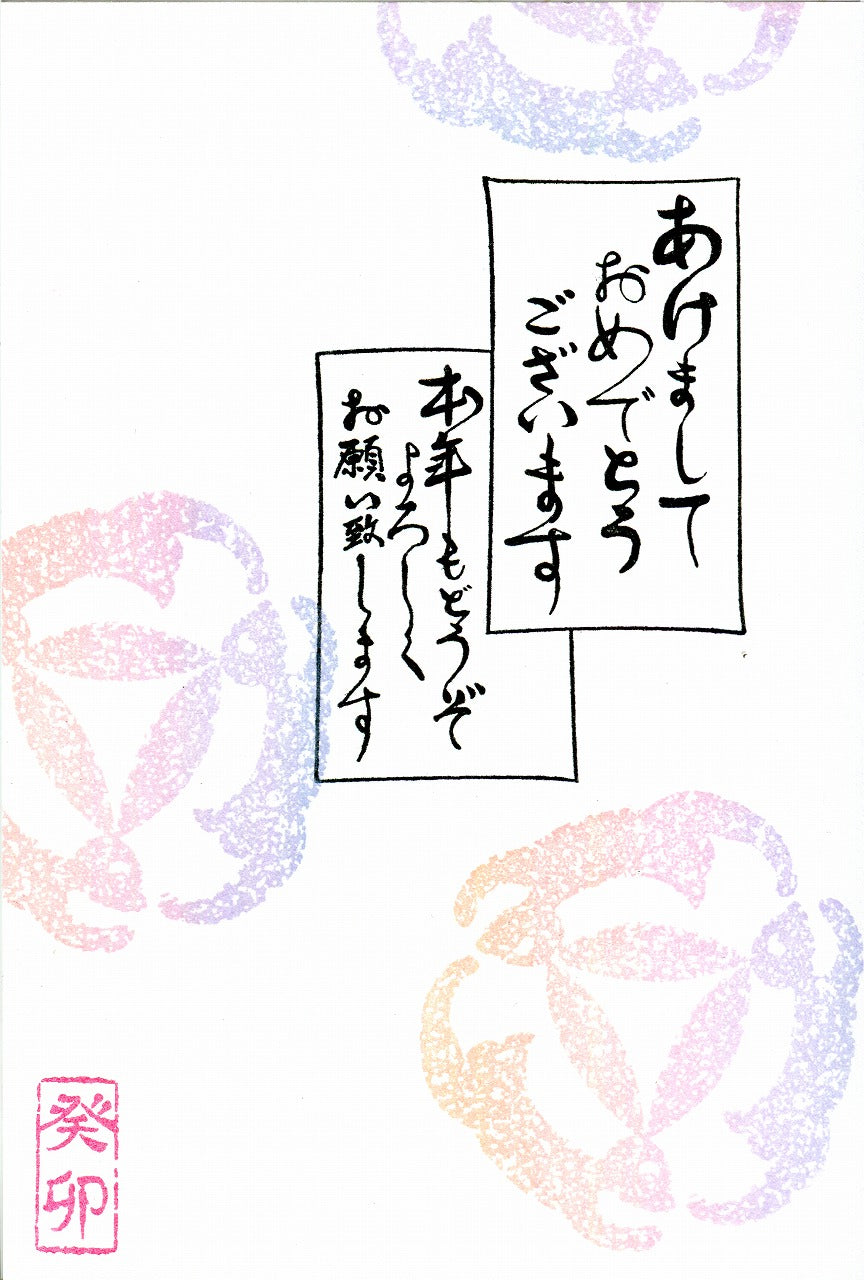 あけまして
おめでとう
ございます
本年もどうぞ
よろしく
お願い致します
癸卯